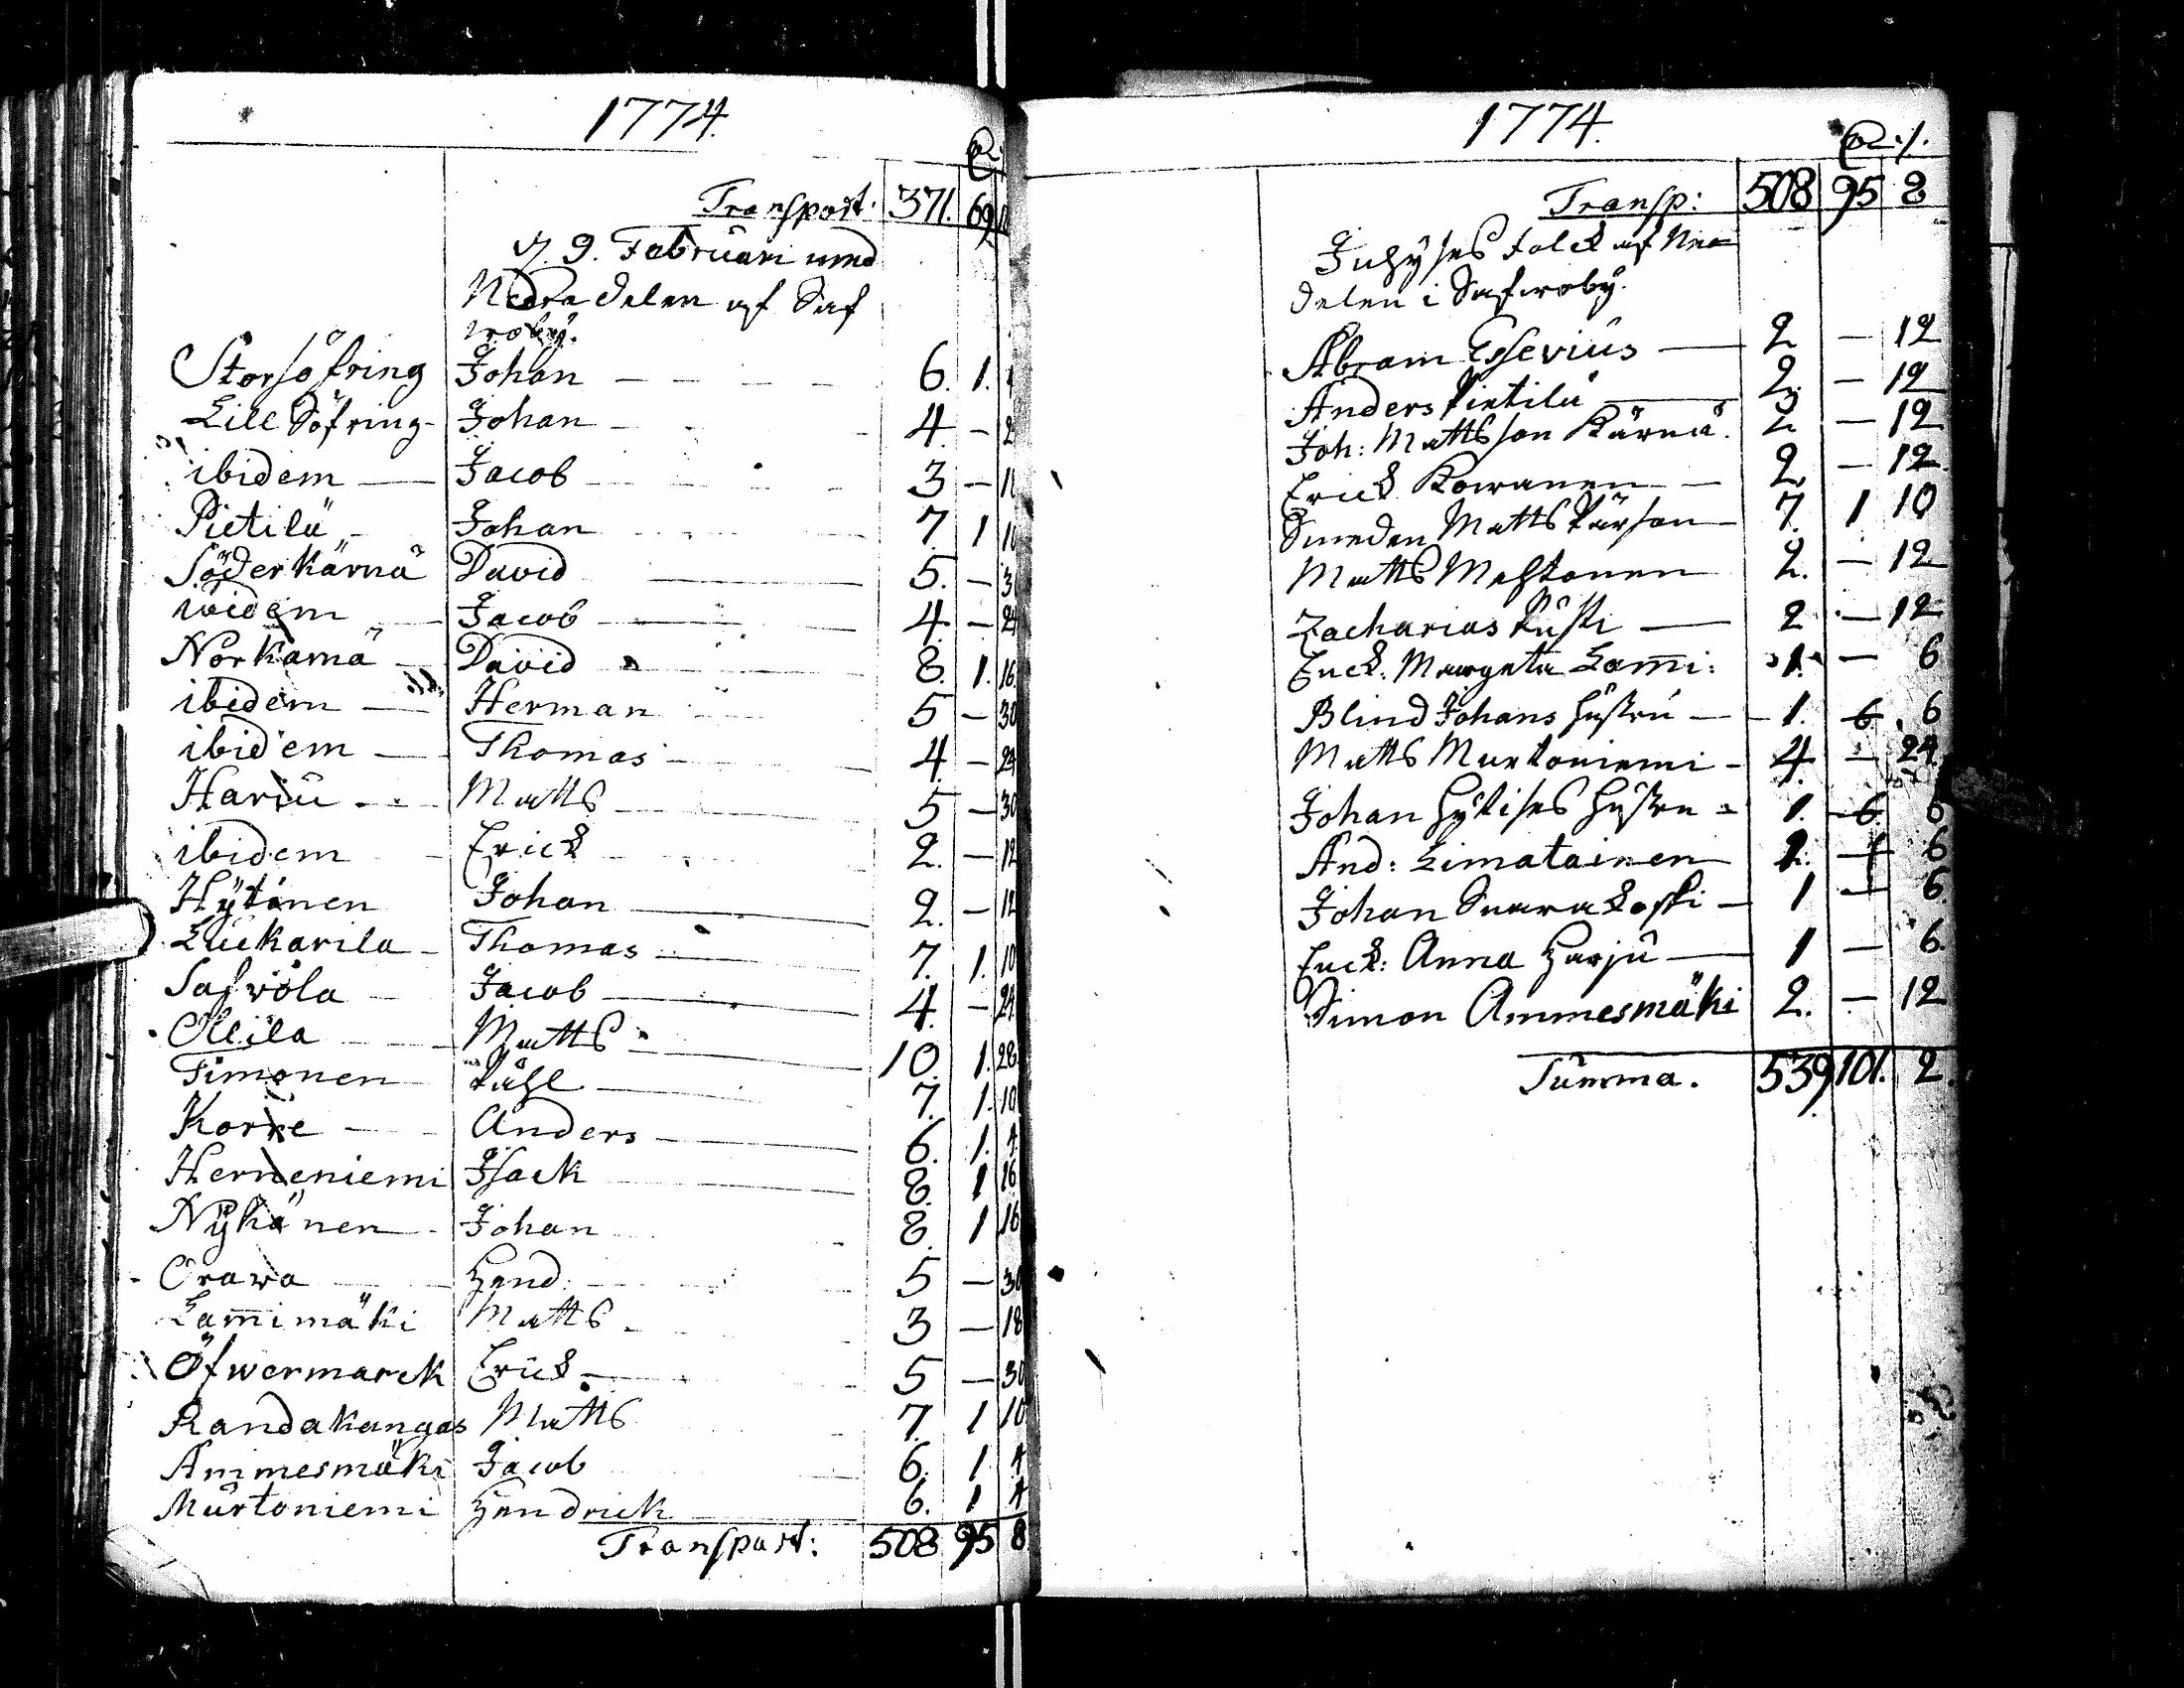 1774.
Transport. 371. 69
d. 9. Februari med
Nedra delen af Saf
wroby.
Storsöfring Johan 6. 1.
Lill Söfring Johan 4. — 2
ibidem Jacob 3 — 1
Pietilä Johan 7. 1 10
Söderkärnä David 5. — 3
ibidem Jacob 4 — 24
Norkärnä David 8. 1. 16.
ibidem Herman 5 — 30
ibidem Thomas 4 — 24
Hariu Matts 5 — 30
ibidem Erick 2. — 12
Hytinen Johan 2. — 12
Luckarila Thomas 7. 1. 10
Safwola Jacob 4. — 24
Ollila Matts 10. 1. 28
Timonen Påhl 7. 1. 10
Korre Anders 6. 1. 4
Herneniemi Isack 8. 1 16
Nykänen Johan 8. 1 16
Orawa Hend. 5 — 30
Lam̄imäki Matts 3 — 18
Öfwermarck Erick 5 — 30
Randakangas Matts 7. 1 10
Ammesmäki Jacob 6. 1 4
Murtoniemi Hendrick 6. 1 4
Transport: 508 95 8
1774.
Transp: 508 95 8
Inhyses folck af Ne
delen i Safwroby.
Abram Esserius 2 — 12
Anders Pietilä 2. — 12
Joh: Mattsson Kärnä. 2 — 12
Erick Kowanen 2. — 12.
Smeden Matts Pärson 7. 1 10
Matts Mahtonen 2. — 12
Zacharias 2 — 12
Enck. Margeta Lam̄i: 1. — 6
Blind Johans hustru 1. 6. 6
Matts Murtoniemi 4. — 24.
Johan Hytises hustru 1. 6. 6
And: Limatainen 1. — 6
Johan Saarakoski 1 — 6.
Enck: Anna Harju 1 — 6.
Simon Ammesmäki 2. — 12
Summa. 539. 101. 2.